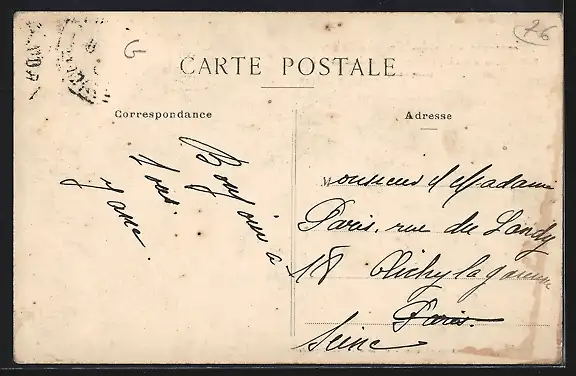 76
G
CARTE POSTALE
Correspondance
Adresse
Bonjour a
tous.
Monsieur & Madame
Paris, rue du Landy
18 Clichy la garenne
Paris.
Seine